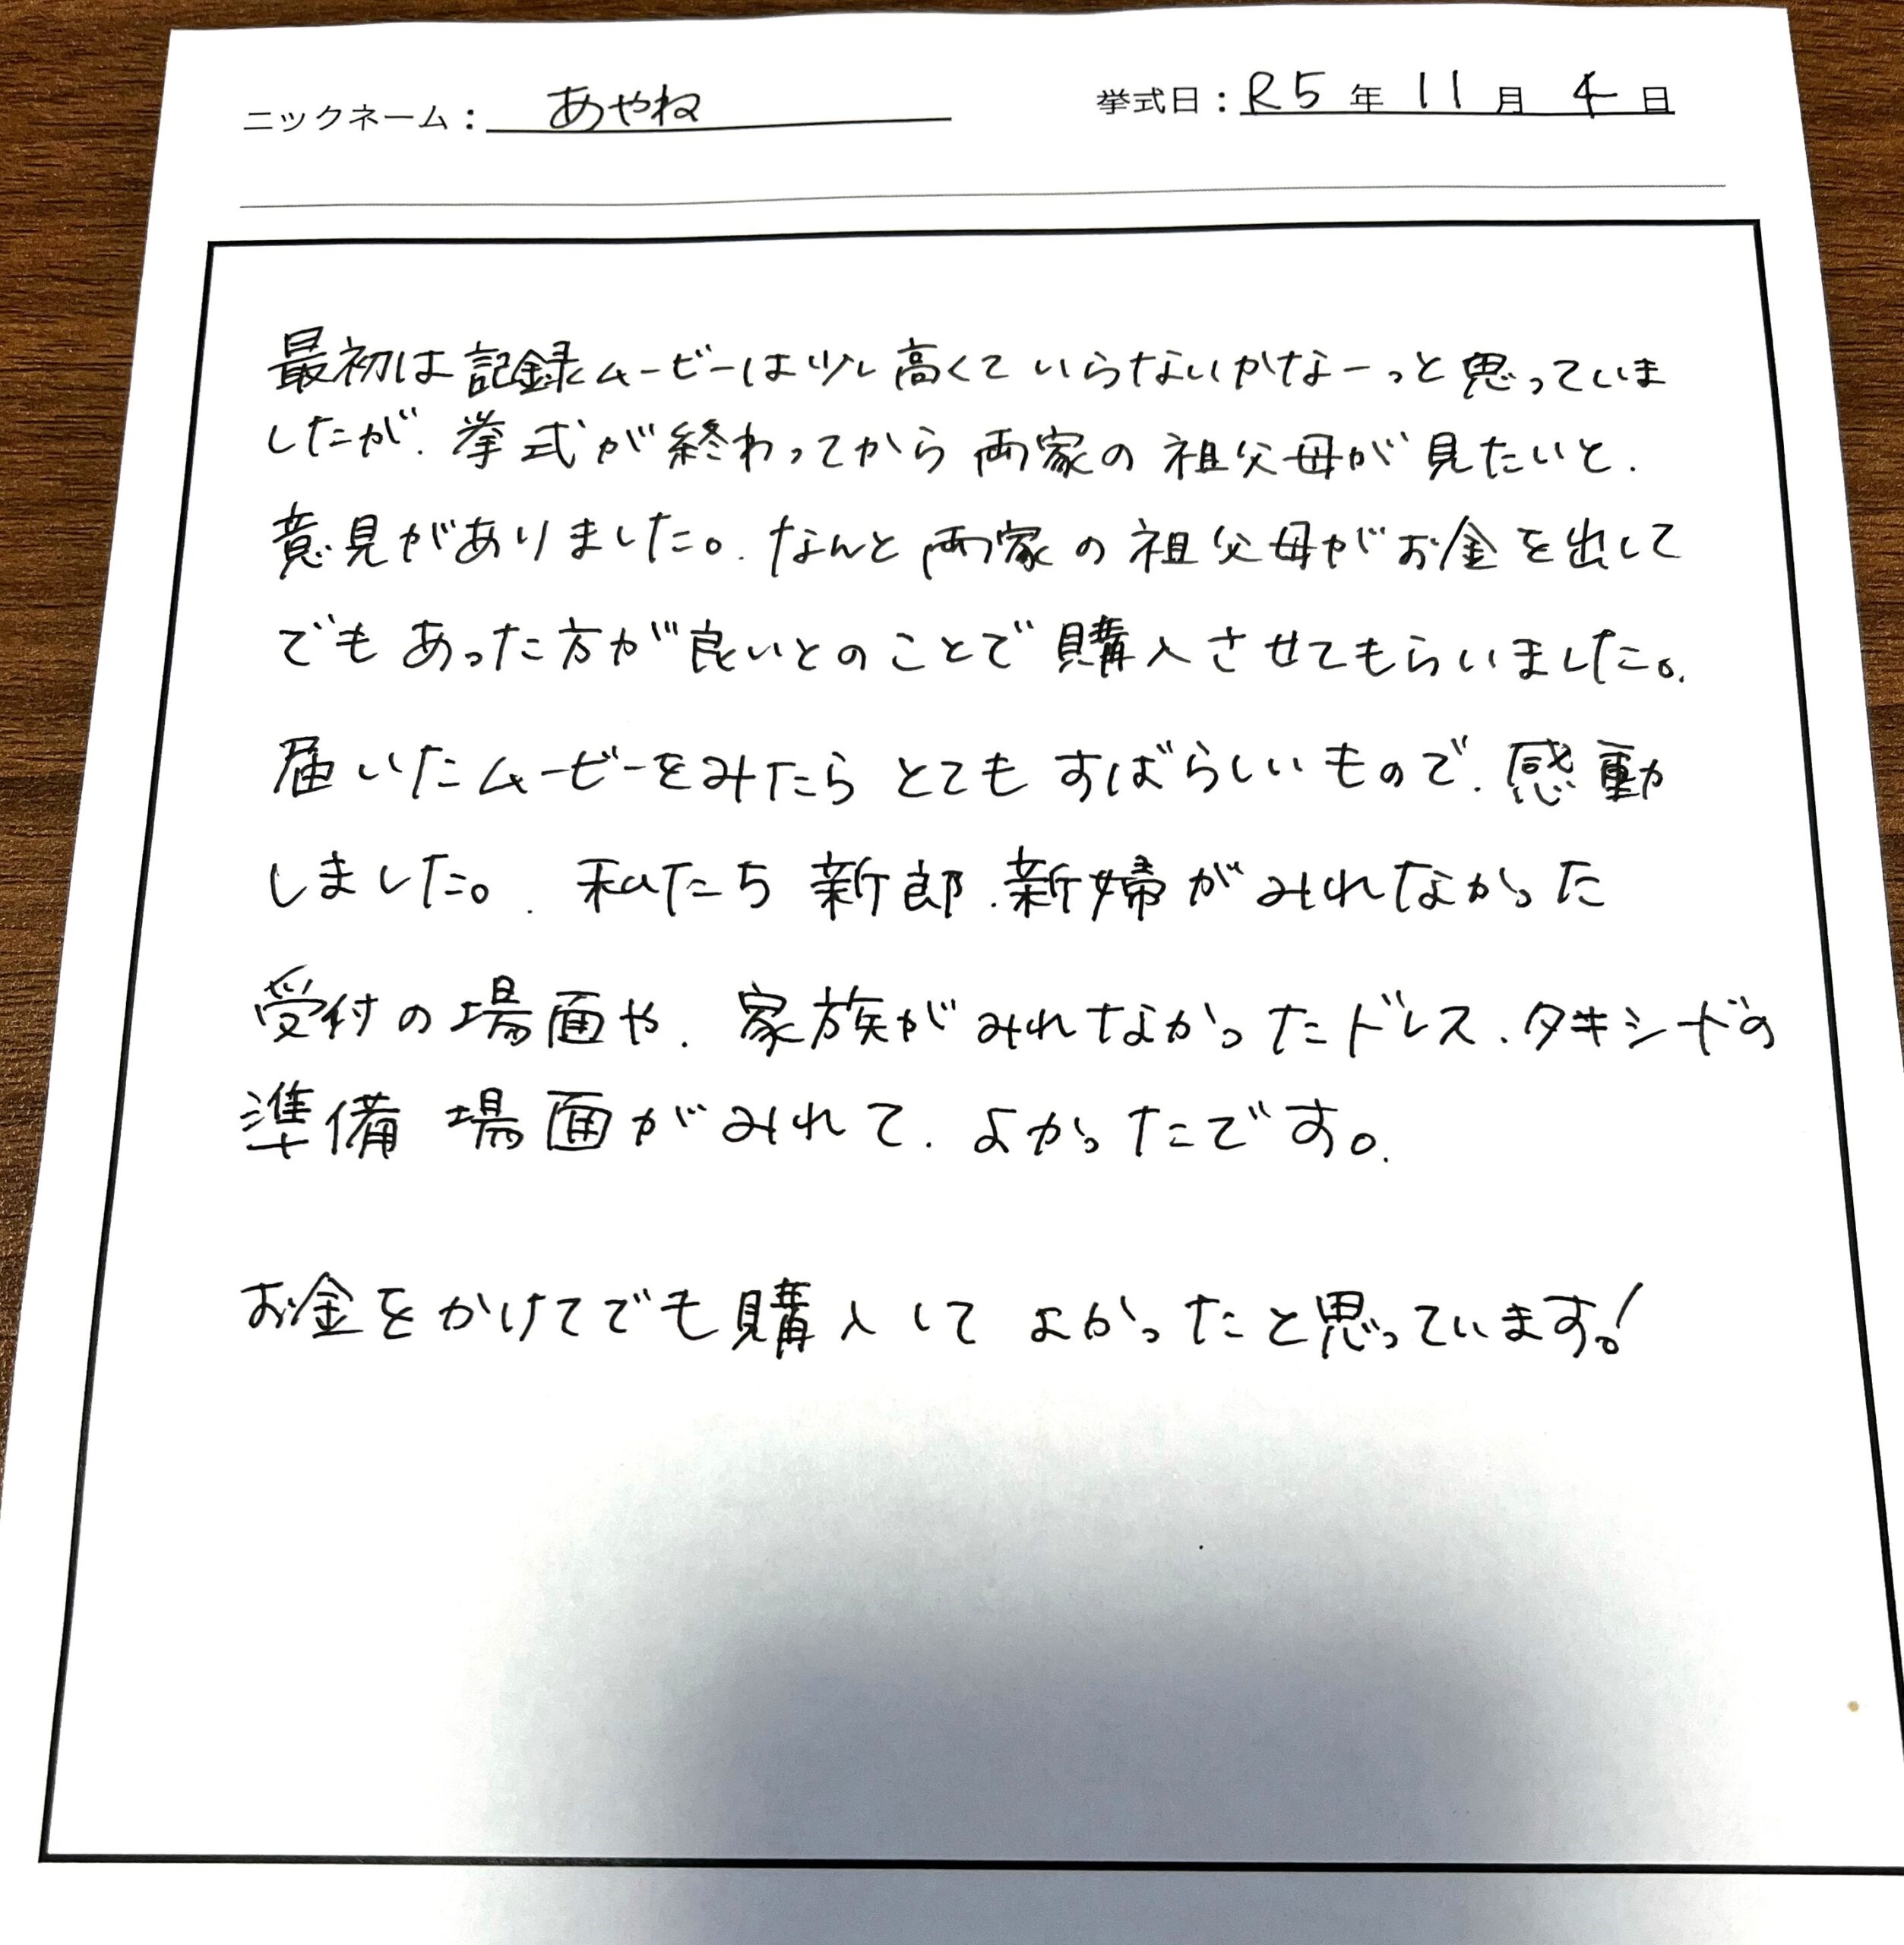 ニックネーム：あやね
挙式日：R5年11月4日
最初は記録ムービーは少し高くていらないかなーっと思っていま
したが、挙式が終わってから両家の祖父母が見たいと、
意見がありました。なんと両家の祖父母がお金を出して
でもあった方が良いとのことで購入させてもらいました。
届いたムービーをみたらとてもすばらしいもので、感動
しました。私たち新郎、新婦がみれなかった
受付の場面や、家族がみれなかったドレス、タキシードの
準備場面がみれて、よかったです。
お金をかけてでも購入してよかったと思っています!